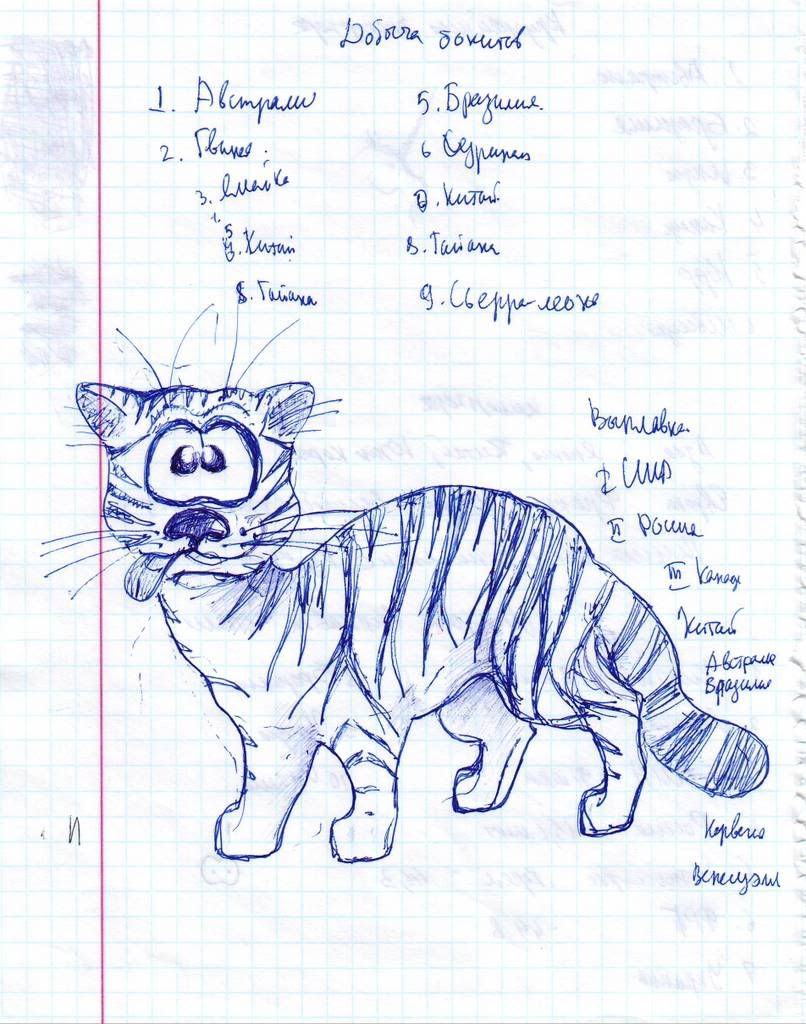 Добыча бокитов
1. Австрали
2. Гвинея.
3. Ямайка
Китай
8. Гайана
5. Бразилия.
6
Китай
8. Гайана
9. Сьерра-леоне
Выплавка
I США
II Россия
III Канад
Китай
Австралия
Бразилия
Норвегия
Венесуэлл
И